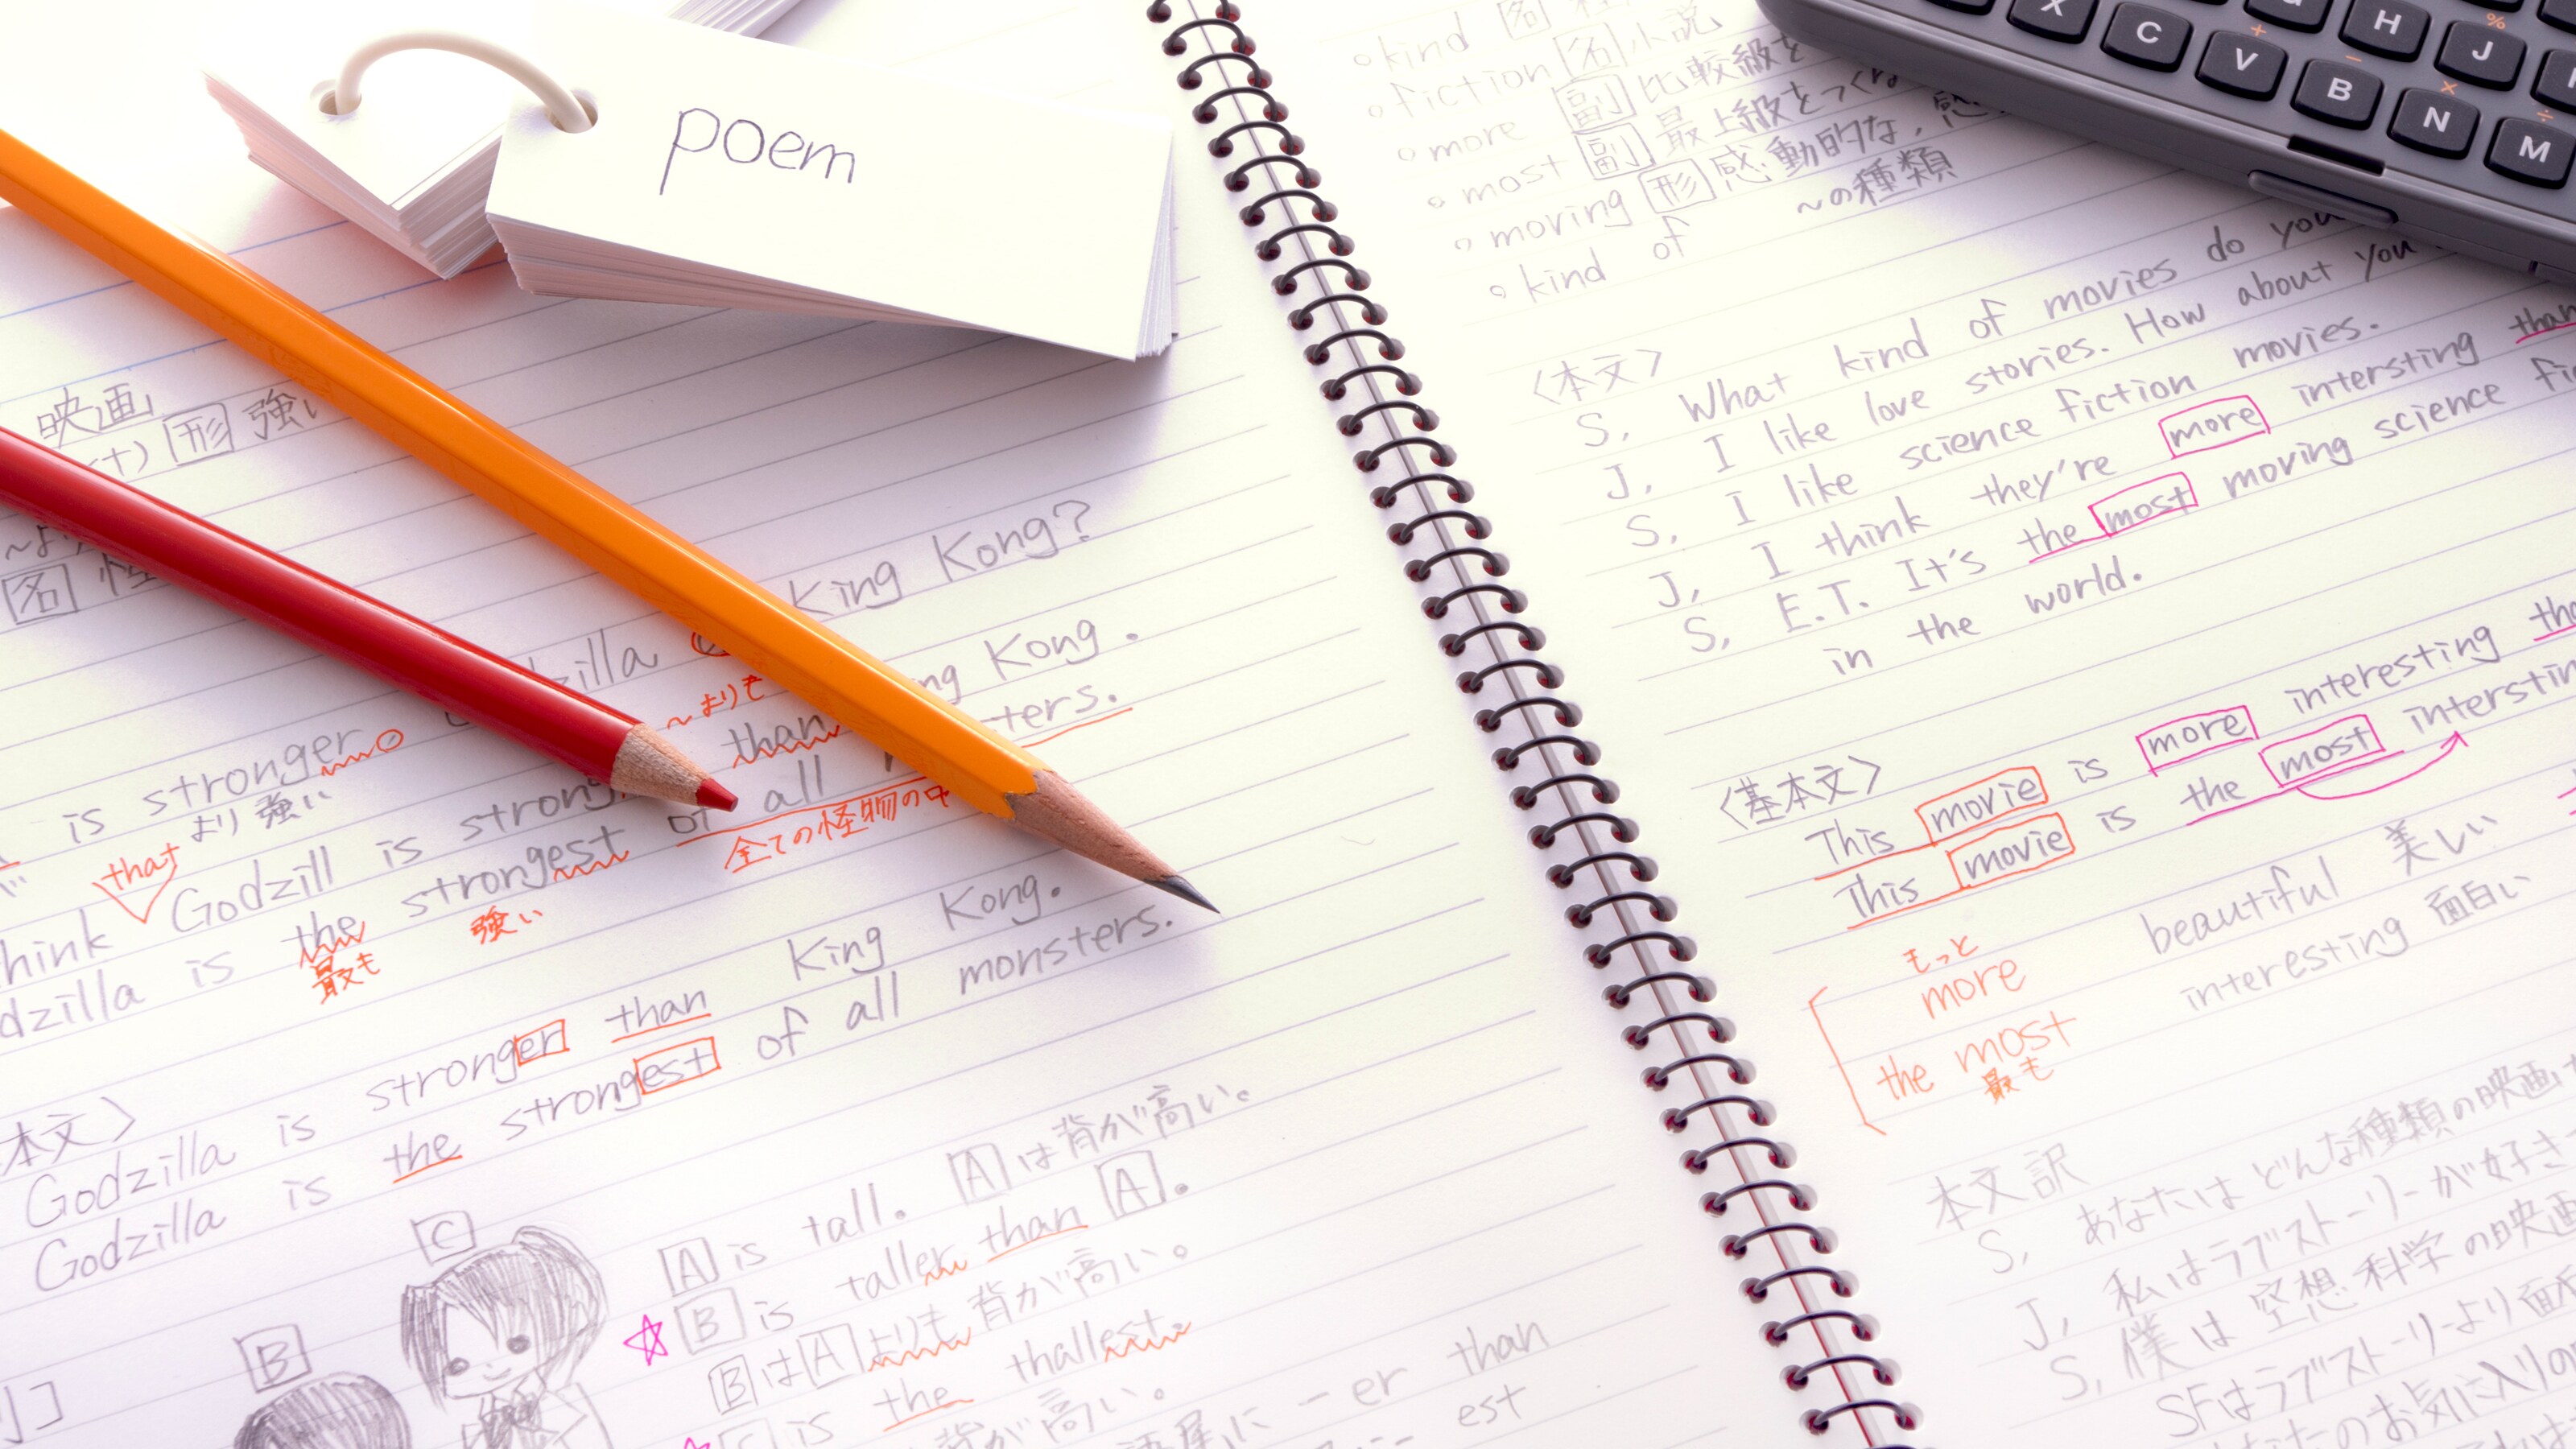 poem
映画
形 強い
〜より
名
King Kong?
zilla
〜よりも
ng Kong.
is stronger
than
ters.
より強い
Godzill is strong
all
that
全ての怪物の中
hink
dzilla is the strongest of
最も
強い
King Kong.
本文〉
Godzilla is stronger than
Godzilla is the strongest of all monsters.
C
B
A is tall. Aは背が高い。
☆ B is taller than A.
BはAよりも背が高い。
C is the thallest.
背が高い。
語尾に -er than
est
kind 名
fiction 名 小説
more 副 比較級を
most 副 最上級をつくる
moving 形 感動的な,感
kind of 〜の種類
〈本文〉
S, What kind of movies do you
J, I like love stories. How about you
S, I like science fiction movies.
J, I think they're more intersting than
S, E.T. It's the most moving science fic
in the world.
〈基本文〉
This movie is more interesting tha
This movie is the most interstin
もっと
more beautiful 美しい
the most interesting 面白い
最も
本文訳
S, あなたはどんな種類の映画
J, 私はラブストーリーが好き
S, 僕は空想科学の映画
SFはラブストーリーより面
なたのお気に入りの
X C V B N M H J
+ − × ÷ %